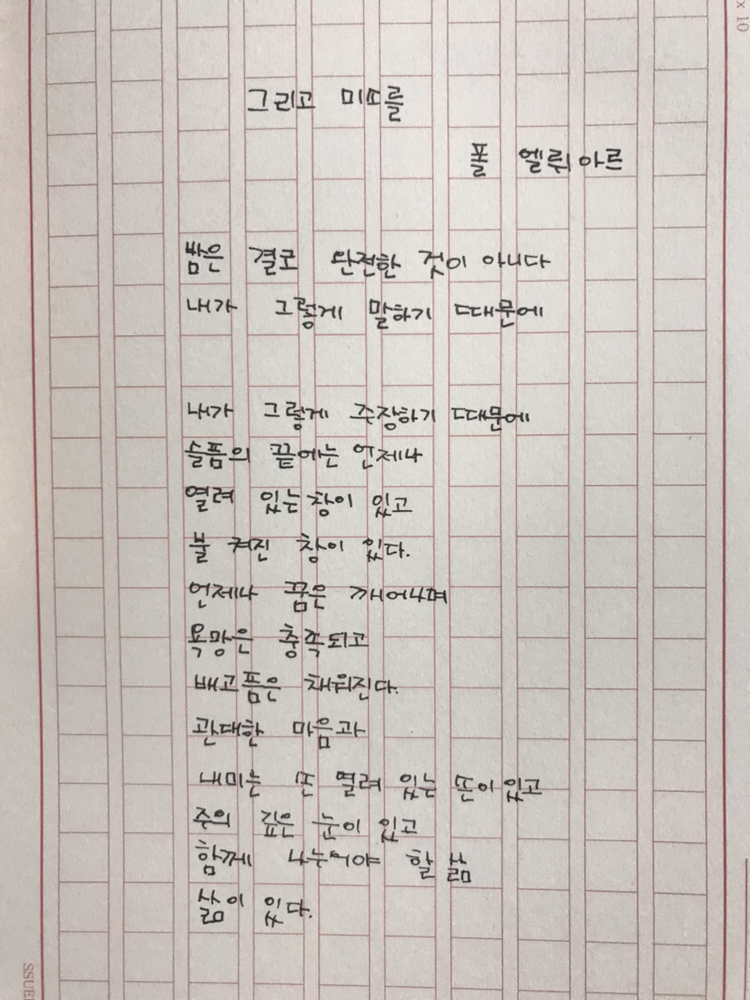 그리고 미소를
폴 엘뤼아르
밤은 결코 완전한 것이 아니다
내가 그렇게 말하기 때문에
내가 그렇게 주장하기 때문에
슬픔의 끝에는 언제나
열려 있는 창이 있고
불 켜진 창이 있다.
언제나 꿈은 깨어나며
욕망은 충족되고
배고픔은 채워진다.
관대한 마음과
내미는 손 열려 있는 손이 있고
주의 깊은 눈이 있고
함께 나누어야 할 삶
삶이 있다.
x 10